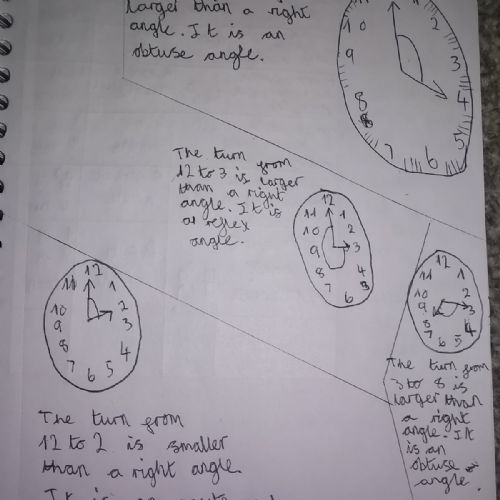 larger than a right
angle. It is an
obtuse angle.
10
2
9
3
8
4
7
6
5
The turn from
12 to 3 is larger
than a right
angle. It is
a reflex
angle.
12
11 1
10 2
9 3
8 4
7
6
12
11 1
10 2
9 3
8 4
7 5
6
12
11 1
10 2
9 3
8 4
7 5
6
The turn from
3 to 8 is
larger than
a right
angle. It
is an
obtuse
angle.
The turn from
12 to 2 is smaller
than a right angle.